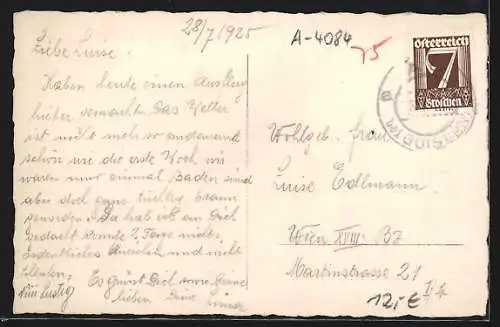 28/7 1925
A-4084
75
Österreich
7
Groschen
Liebe Luise.
Haben heute einen Ausflug
hieher gemacht. Das Wetter
ist nicht mehr so andauernd
schön wie die erste Woch wir
waren nur einmal Baden sind
aber doch ganz tüchtig braun
geworden. Da hab ich an Dich
gedacht
und nicht
Es grüsst Dich sowie Deine
lieben Deine
Wohlgeb. Frau
Luise Edlmann
Wien XVIII. Bz
Martinstrasse 21
12,- €